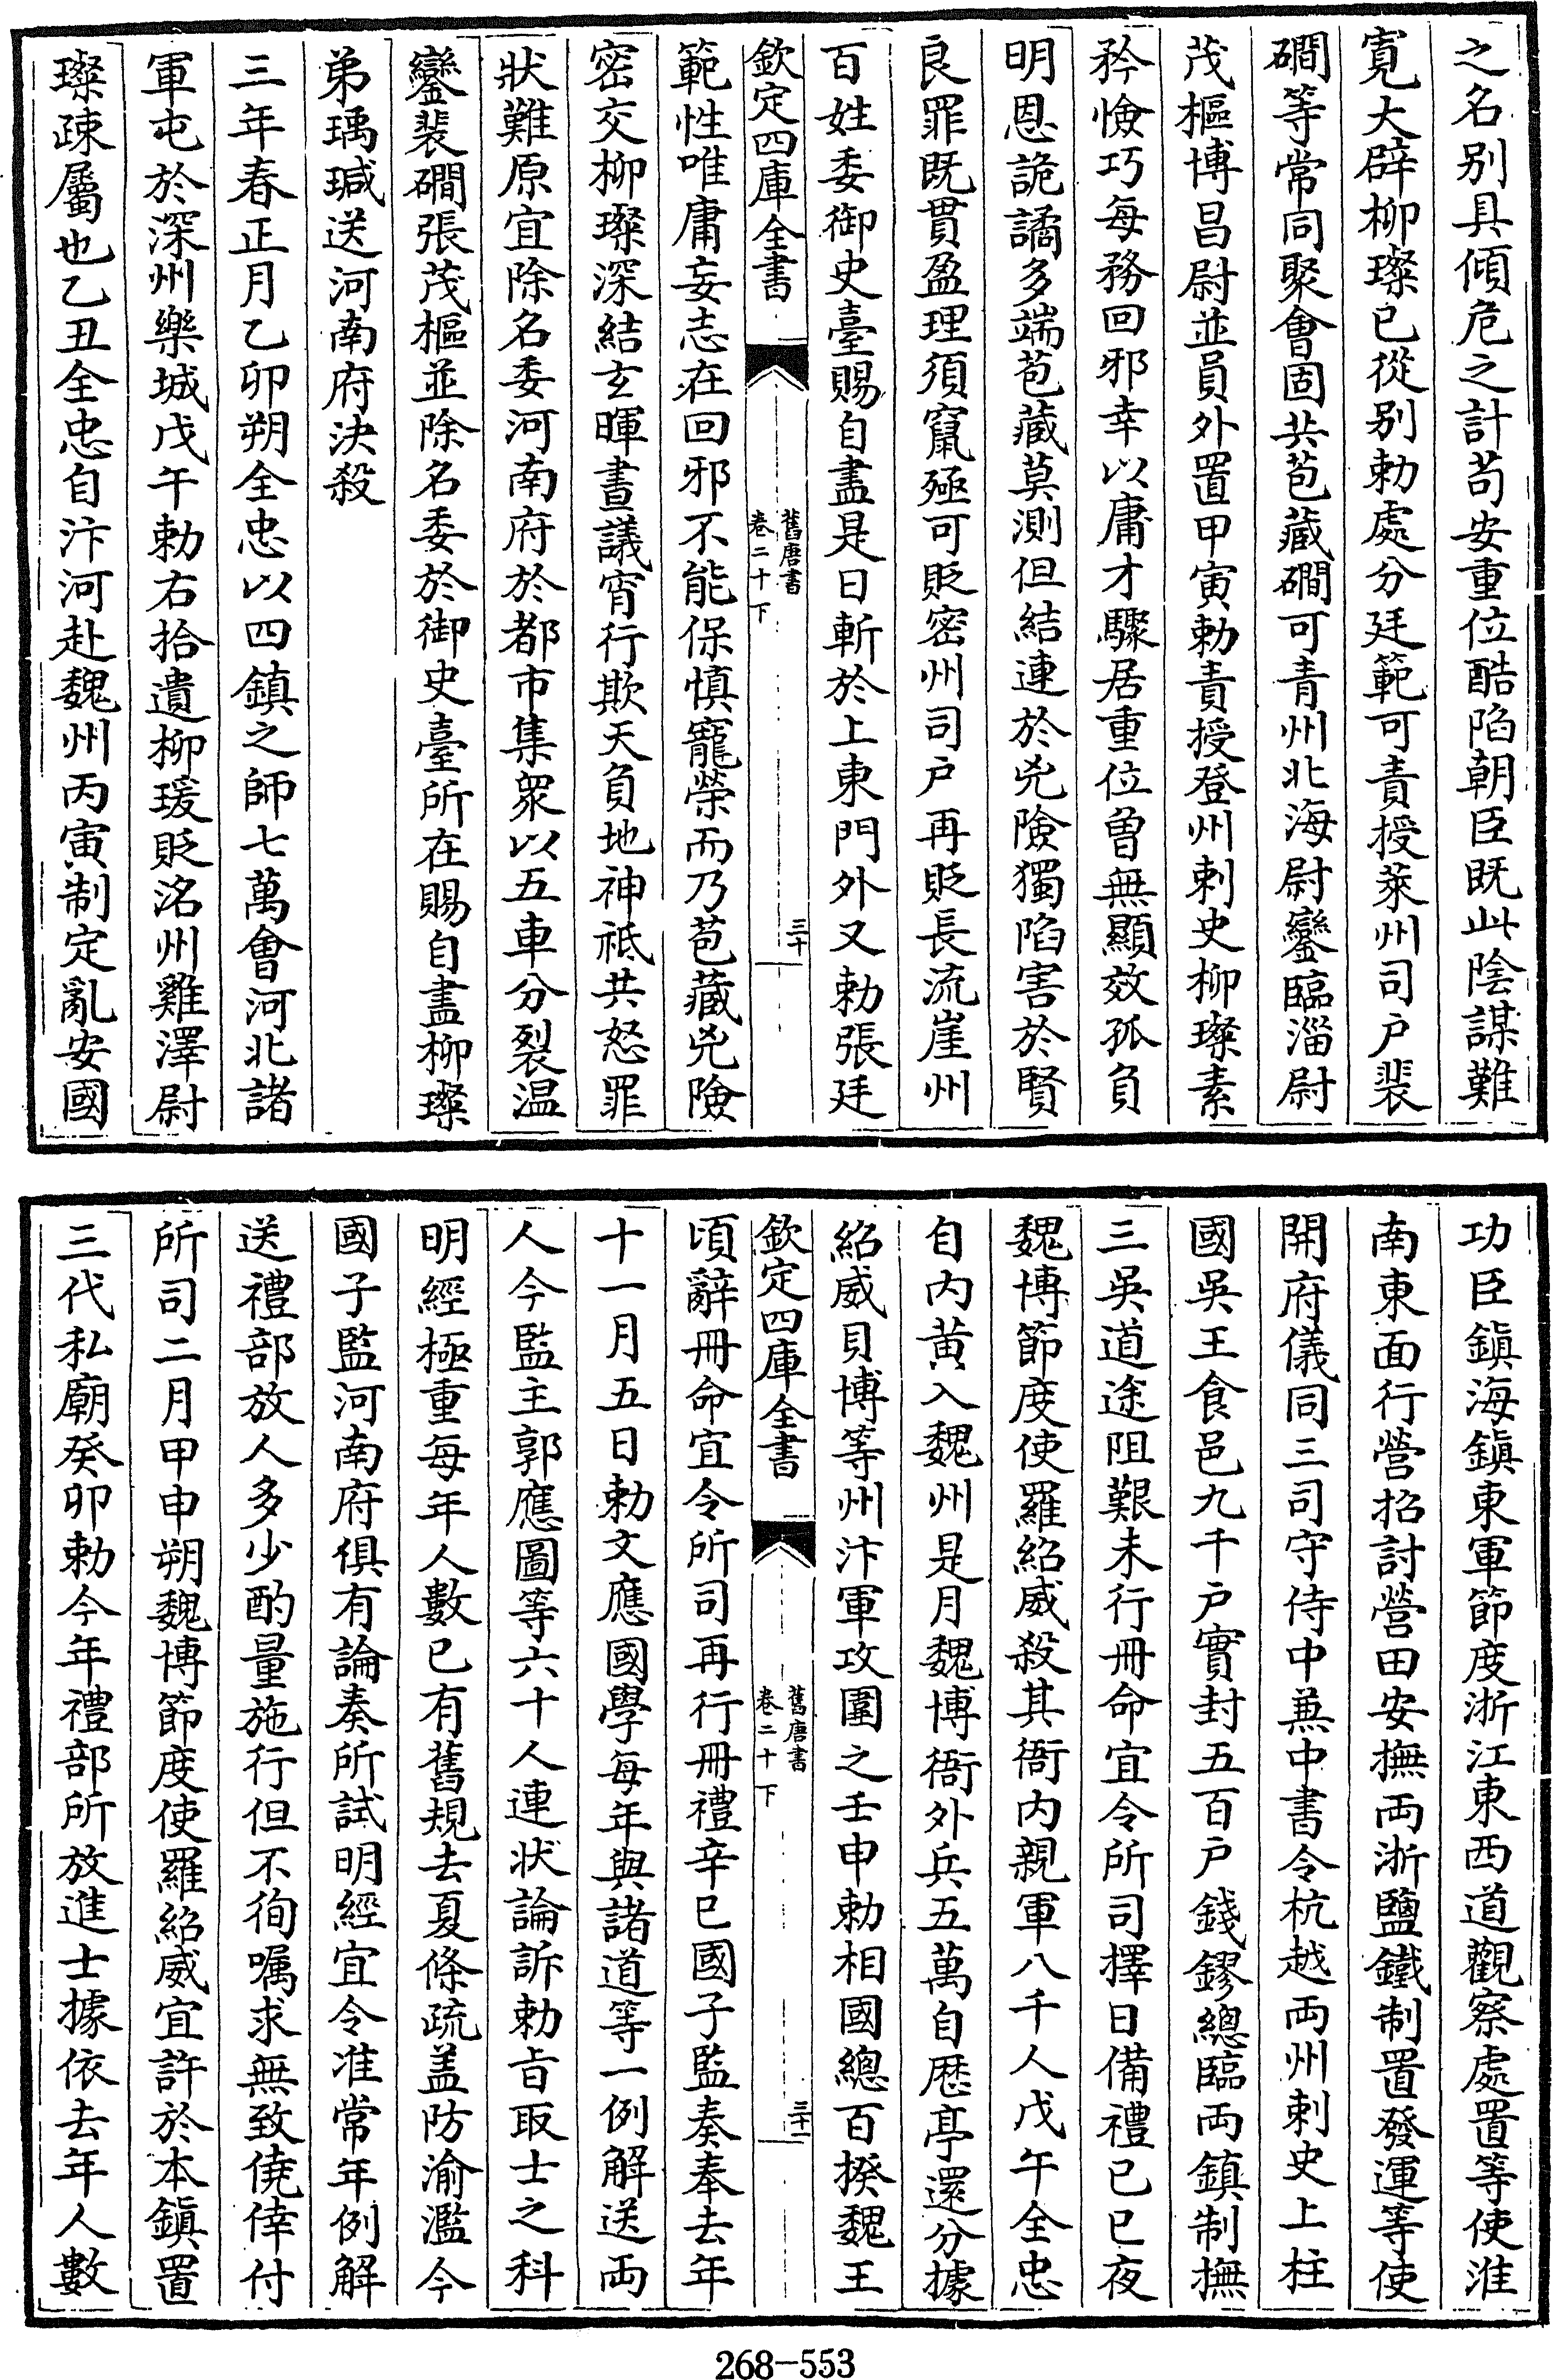 之名别具傾危之計苟安重位酷陷朝臣既此陰謀難
寛大辟柳璨已從别勅處分廷範可責授萊州司户裴
磵等常同聚會固共苞藏磵可青州北海尉鑾臨淄尉
茂樞博昌尉並員外置甲寅勅責授登州刺史柳璨素
矜憸巧每務回邪幸以庸才驟居重位曽無顯效孤負
明恩詭譎多端苞藏莫測但結連於兇險獨陷害於賢
良罪既貫盈理須竄殛可貶密州司户再貶長流崖州
百姓委御史臺賜自盡是日斬於上東門外又勅張廷
欽定四庫全書
舊唐書
卷二十下
三十
範性唯庸妄志在回邪不能保慎寵榮而乃苞藏兇險
密交柳璨深結玄暉晝議宵行欺天負地神祇共怒罪
狀難原宜除名委河南府於都市集衆以五車分裂温
鑾裴磵張茂樞並除名委於御史臺所在賜自盡柳璨
弟瑀瑊送河南府決殺
三年春正月乙卯朔全忠以四鎮之師七萬會河北諸
軍屯於深州樂城戊午勅右拾遺柳瑗貶洺州雞澤尉
璨疎屬也乙丑全忠自汴河赴魏州丙寅制定亂安國
功臣鎮海鎮東軍節度浙江東西道觀察處置等使淮
南東面行營招討營田安撫両浙鹽鐵制置發運等使
開府儀同三司守侍中兼中書令杭越両州刺史上柱
國吳王食邑九千户實封五百户錢鏐總臨両鎮制撫
三吳道途阻艱未行冊命宜令所司擇日備禮已巳夜
魏博節度使羅紹威殺其衙内親軍八千人戊午全忠
自内黄入魏州是月魏博衙外兵五萬自歴亭還分據
紹威貝博等州汴軍攻圍之壬申勅相國總百揆魏王
欽定四庫全書
舊唐書
卷二十下
三十一
頃辭冊命宜令所司再行冊禮辛巳國子監奏奉去年
十一月五日勅文應國學每年與諸道等一例解送両
人今監主郭應圖等六十人連状論訴勅旨取士之科
明經極重每年人數已有舊規去夏條疏盖防渝濫今
國子監河南府俱有論奏所試明經宜令准常年例解
送禮部放人多少酌量施行但不徇嘱求無致僥倖付
所司二月甲申朔魏博節度使羅紹威宜許於本鎮置
三代私廟癸卯勅今年禮部所放進士據依去年人數
268-553